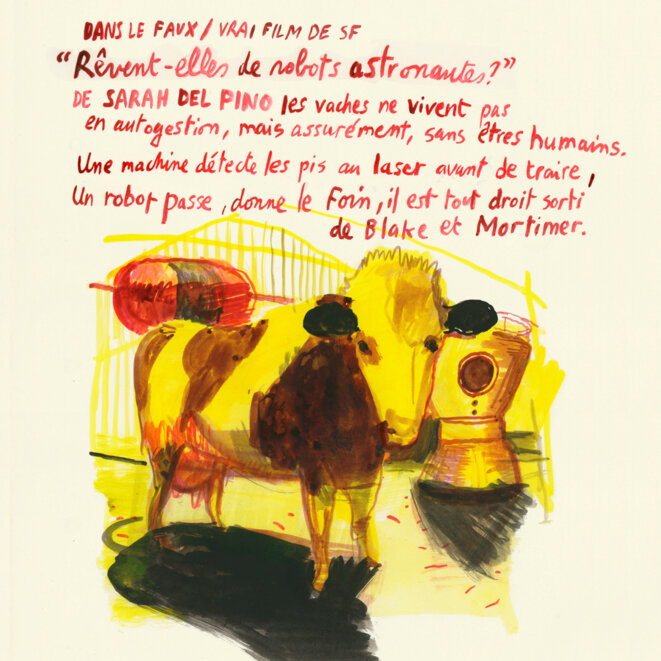 DANS LE FAUX / VRAI FILM DE SF
“Rêvent-elles de robots astronautes?”
DE SARAH DEL PINO les vaches ne vivent pas
en autogestion, mais assurément, sans êtres humains.
Une machine détecte les pis au laser avant de traire,
Un robot passe, donne le Foin, il est tout droit sorti
de Blake et Mortimer.